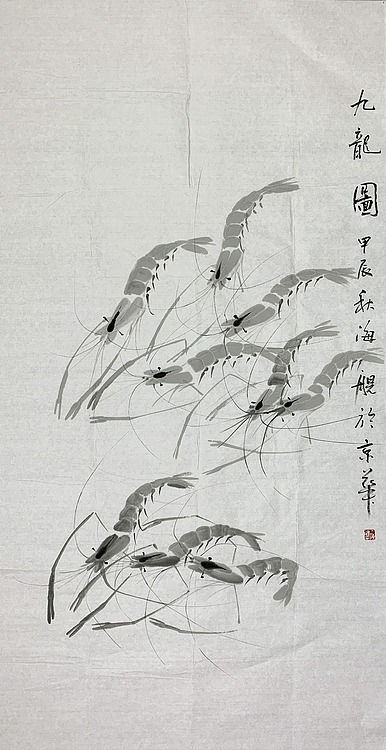 九龍圖 甲辰秋海艉於京華